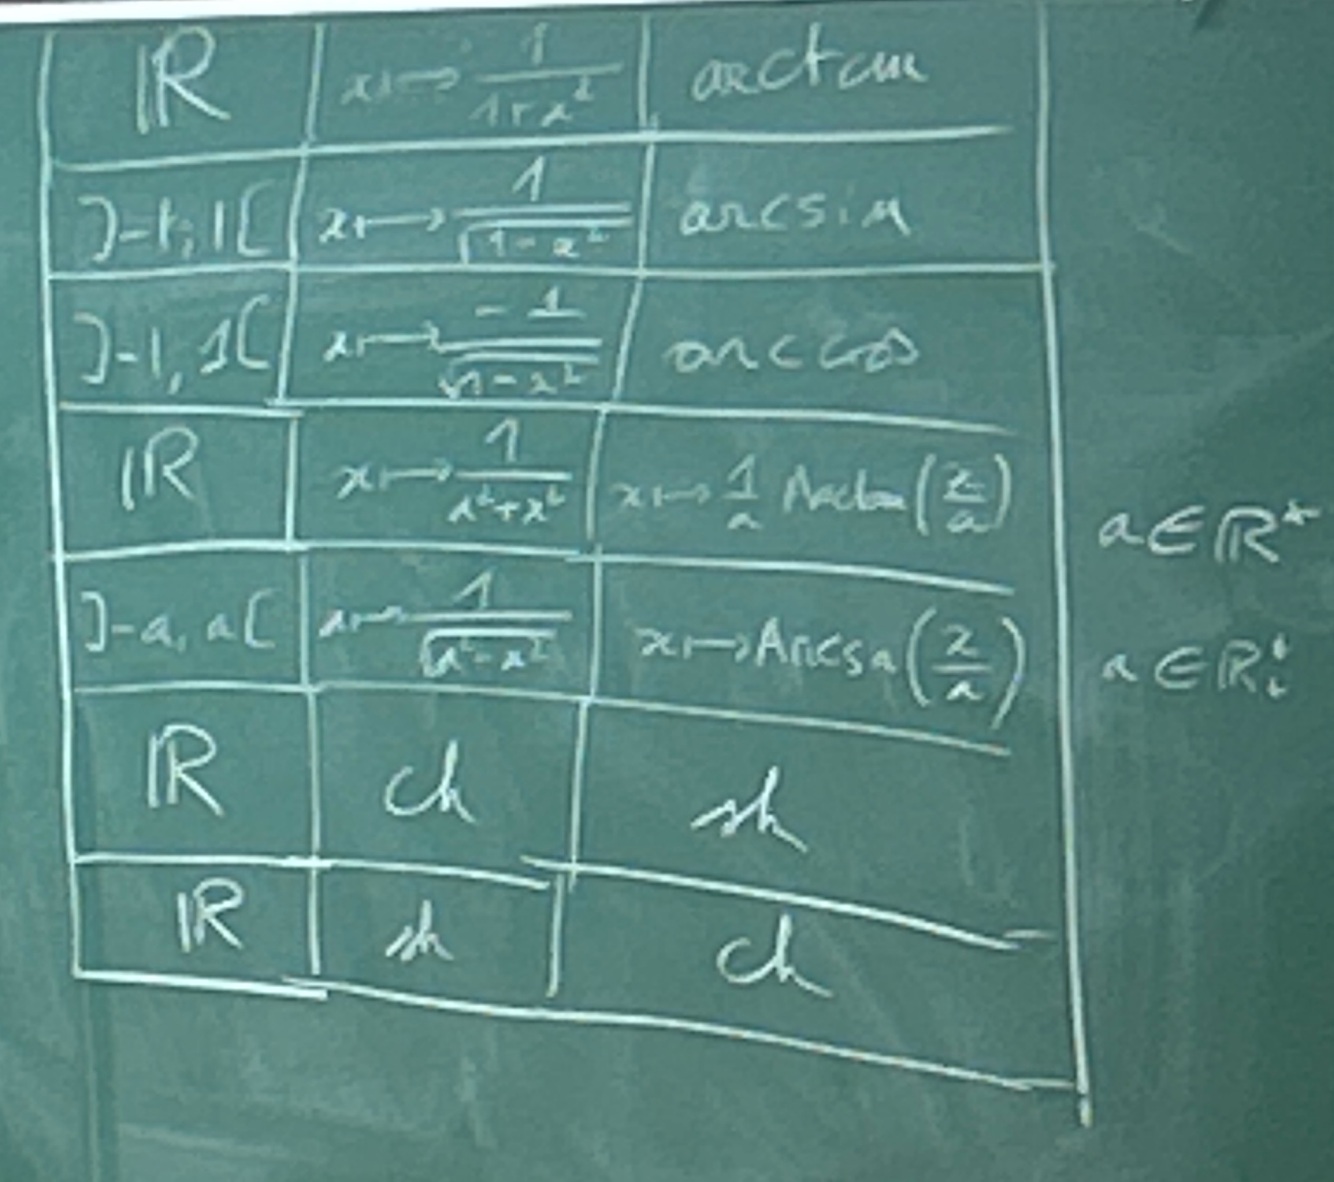 ℝ x ⟼ 1/(1+x²) arctan
]-1,1[ x ⟼ 1/√(1-x²) arcsin
]-1,1[ x ⟼ -1/√(1-x²) arccos
ℝ x ⟼ 1/(a²+x²) x ⟼ 1/a Arctan(x/a) a ∈ ℝ*
]-a, a[ x ⟼ 1/√(a²-x²) x ⟼ Arcsin(x/a) a ∈ ℝ₊*
ℝ ch sh
ℝ sh ch